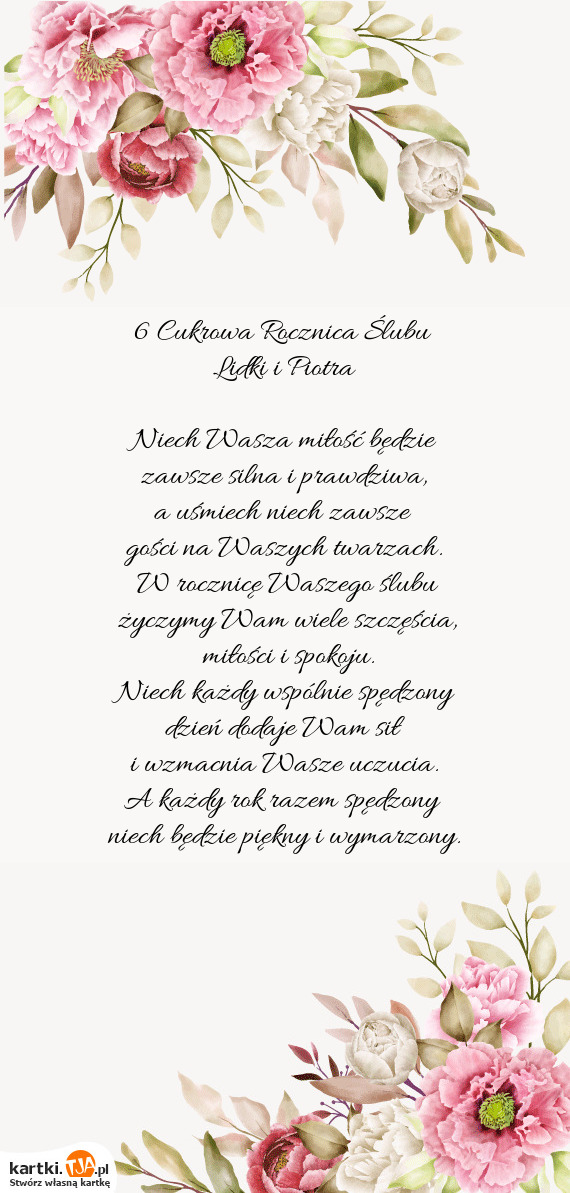 6 Cukrowa Rocznica Ślubu
Lidki i Piotra
Niech Wasza miłość będzie
zawsze silna i prawdziwa,
a uśmiech niech zawsze
gości na Waszych twarzach.
W rocznicę Waszego ślubu
życzymy Wam wiele szczęścia,
miłości i spokoju.
Niech każdy wspólnie spędzony
dzień dodaje Wam sił
i wzmacnia Wasze uczucia.
A każdy rok razem spędzony
niech będzie piękny i wymarzony.
kartki.TJA.pl
Stwórz własną kartkę